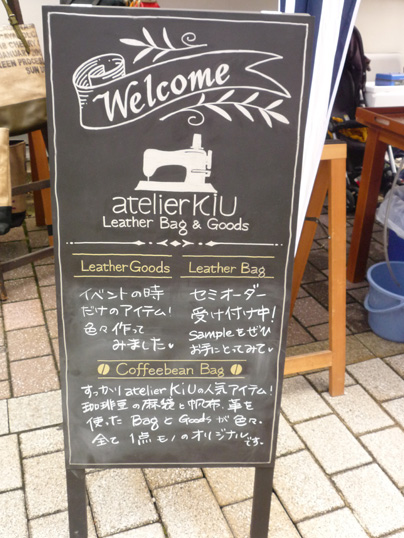 Welcome
atelierKiU
Leather Bag & Goods
Leather Goods
イベントの時
だけのアイテム!
色々作って
みました♥
Leather Bag
セミオーダー
受け付け中!
sampleをぜひ
お手にとってみて♥
Coffeebean Bag
すっかりatelier KiUの人気アイテム!
珈琲豆の麻袋と帆布、革を
使った BagとGoodsが色々。
全て 1点モノのオリジナルです。